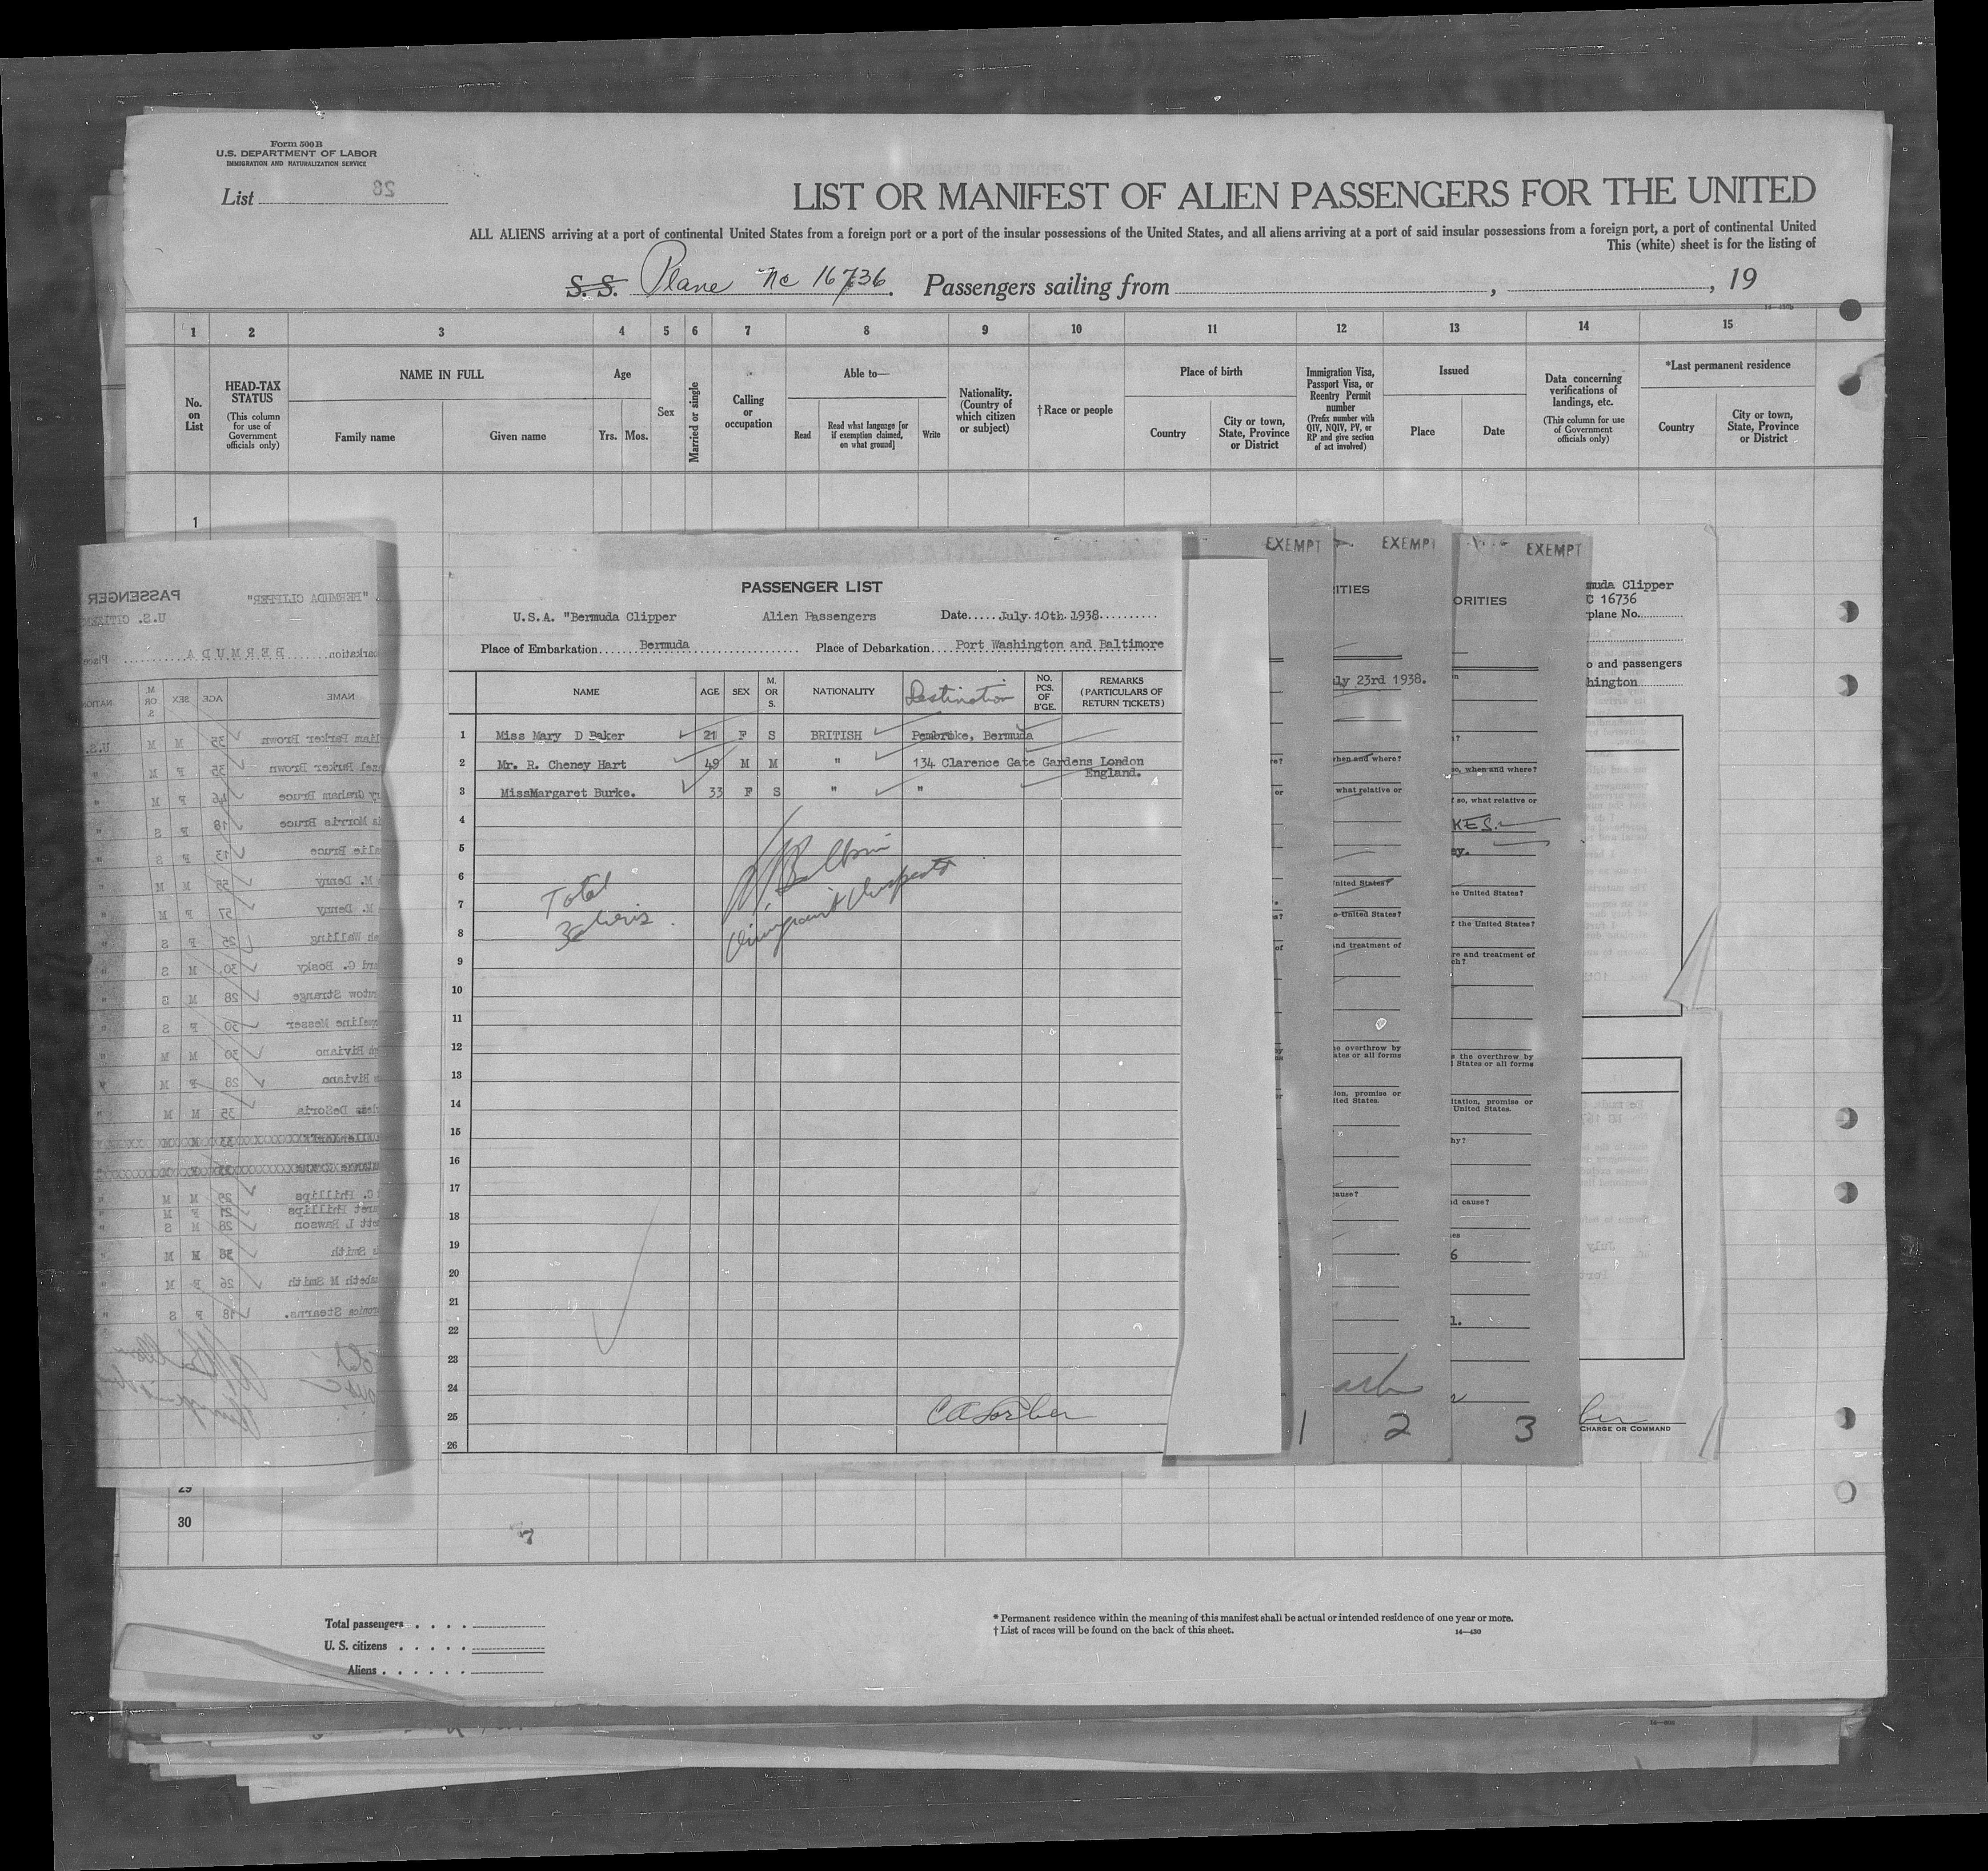 Form 500B
U.S. DEPARTMENT OF LABOR
IMMIGRATION AND NATURALIZATION SERVICE
List 28
LIST OR MANIFEST OF ALIEN PASSENGERS FOR THE UNITED
ALL ALIENS arriving at a port of continental United States from a foreign port or a port of the insular possessions of the United States, and all aliens arriving at a port of said insular possessions from a foreign port, a port of continental United
This (white) sheet is for the listing of
S. S. Plane NC 16736 . Passengers sailing from , , 19
1 2 3 4 5 6 7 8 9 10 11 12 13 14 15
No. on List
HEAD-TAX STATUS
(This column for use of Government officials only)
NAME IN FULL
Family name Given name
Age
Yrs. Mos.
Sex
Married or single
Calling or occupation
Able to—
Read
Read what language [or if exemption claimed, on what ground]
Write
Nationality. (Country of which citizen or subject)
†Race or people
Place of birth
Country
City or town, State, Province or District
Immigration Visa, Passport Visa, or Reentry Permit number
(Prefix number with QIV, NQIV, PV, or RP and give section of act involved)
Issued
Place Date
Data concerning verifications of landings, etc.
(This column for use of Government officials only)
*Last permanent residence
Country
City or town, State, Province or District
1
PASSENGER
"BERMUDA CLIPPER"
U.S. CITIZEN
arkation BERMUDA Place
NAME AGE SEX M OR S NATION
liam Parker Brown 35 M M U.S.
azel Parker Brown 35 F M "
ry Graham Bruce 46 F M "
a Morris Bruce 18 F S "
alie Bruce 13 F S "
M. Denny 58 M M "
M. Denny 57 F M "
ah Walling 25 F S "
ard C. Bosky 30 M S "
ntow Strange 28 M S "
ueline Messer 30 F S "
Riviano 30 M M "
Riviano 28 F M "
DeSoria 35 M M "
C. Phillips 29 M M "
aret Phillips 21 F M "
ett L Rawson 28 M S "
Smith 38 M M "
abeth M Smith 26 F M "
ronica Stearns. 18 F S "
PASSENGER LIST
U.S.A. "Bermuda Clipper Alien Passengers Date July 10th 1938
Place of Embarkation Bermuda Place of Debarkation Port Washington and Baltimore
NAME AGE SEX M. OR S. NATIONALITY Destination NO. PCS. OF B'GE. REMARKS (PARTICULARS OF RETURN TICKETS)
1 Miss Mary D Baker 21 F S BRITISH Pembroke, Bermuda
2 Mr. R. Cheney Hart 49 M M " 134 Clarence Gate Gardens London
England.
3 MissMargaret Burke. 33 F S " "
4
5
6
7
8
9
10
11
12
13
14
15
16
17
18
19
20
21
22
23
24
25
26
Total
3 aliens.
EXEMPT
EXEMPT
EXEMPT
ITIES
ly 23rd 1938.
when and where?
what relative or
nited States?
e United States?
nd treatment of
e overthrow by
ates or all forms
ion, promise or
ited States.
ause?
1
2
ORITIES
so, when and where?
f so, what relative or
KES.
ey.
he United States?
f the United States?
re and treatment of
ch?
s the overthrow by
l States or all forms
itation, promise or
United States.
hy?
d cause?
6
3
muda Clipper
C 16736
plane No.
o and passengers
hington
CHARGE OR COMMAND
29
30
7
Total passengers
U. S. citizens
Aliens
* Permanent residence within the meaning of this manifest shall be actual or intended residence of one year or more.
† List of races will be found on the back of this sheet.
14—430